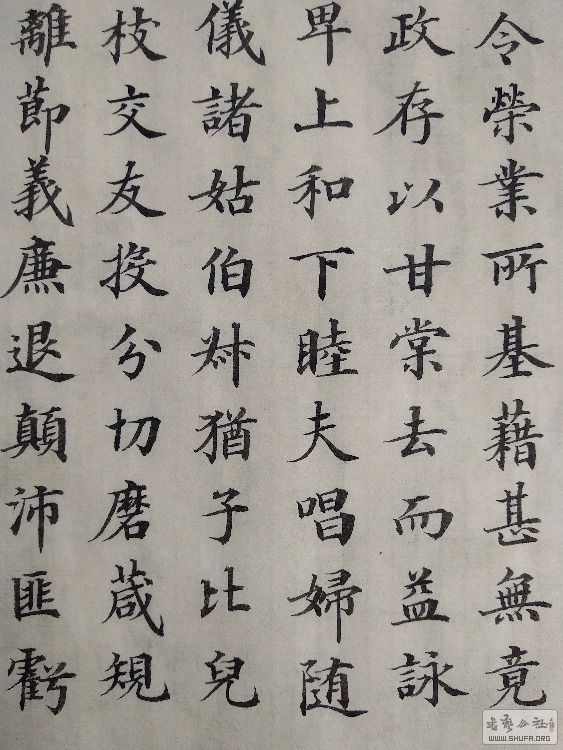 令榮業所基藉甚無竟
政存以甘棠去而益詠
卑上和下睦夫唱婦随
儀諸姑伯叔猶子比兒
枝交友投分切磨葴規
離節義廉退顛沛匪虧
书艺公社
WWW.SHUFA.ORG